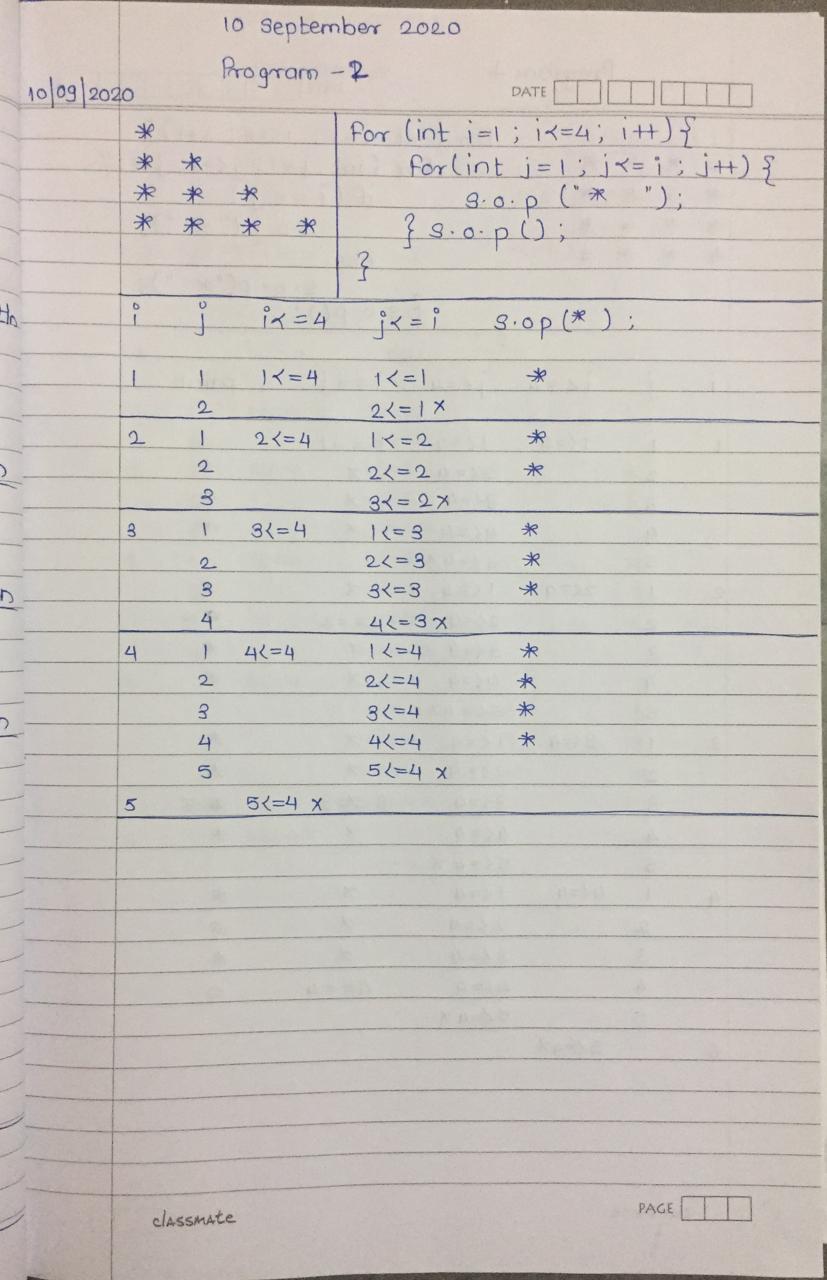 10 September 2020
Program - 2
10/09/2020
DATE
*
* *
* * *
* * * *
for (int i=1 ; i<=4 ; i++) {
for(int j=1 ; j<= i ; j++) {
s.o.p ("* ");
} s.o.p () ;
}
i j i<=4 j<=i s.op(* ) ;
1 1 1<=4 1<=1 *
2 2<=1 x
2 1 2<=4 1<=2 *
2 2<=2 *
3 3<=2 x
3 1 3<=4 1<=3 *
2 2<=3 *
3 3<=3 *
4 4<=3 x
4 1 4<=4 1<=4 *
2 2<=4 *
3 3<=4 *
4 4<=4 *
5 5<=4 x
5 5<=4 x
classmate
PAGE